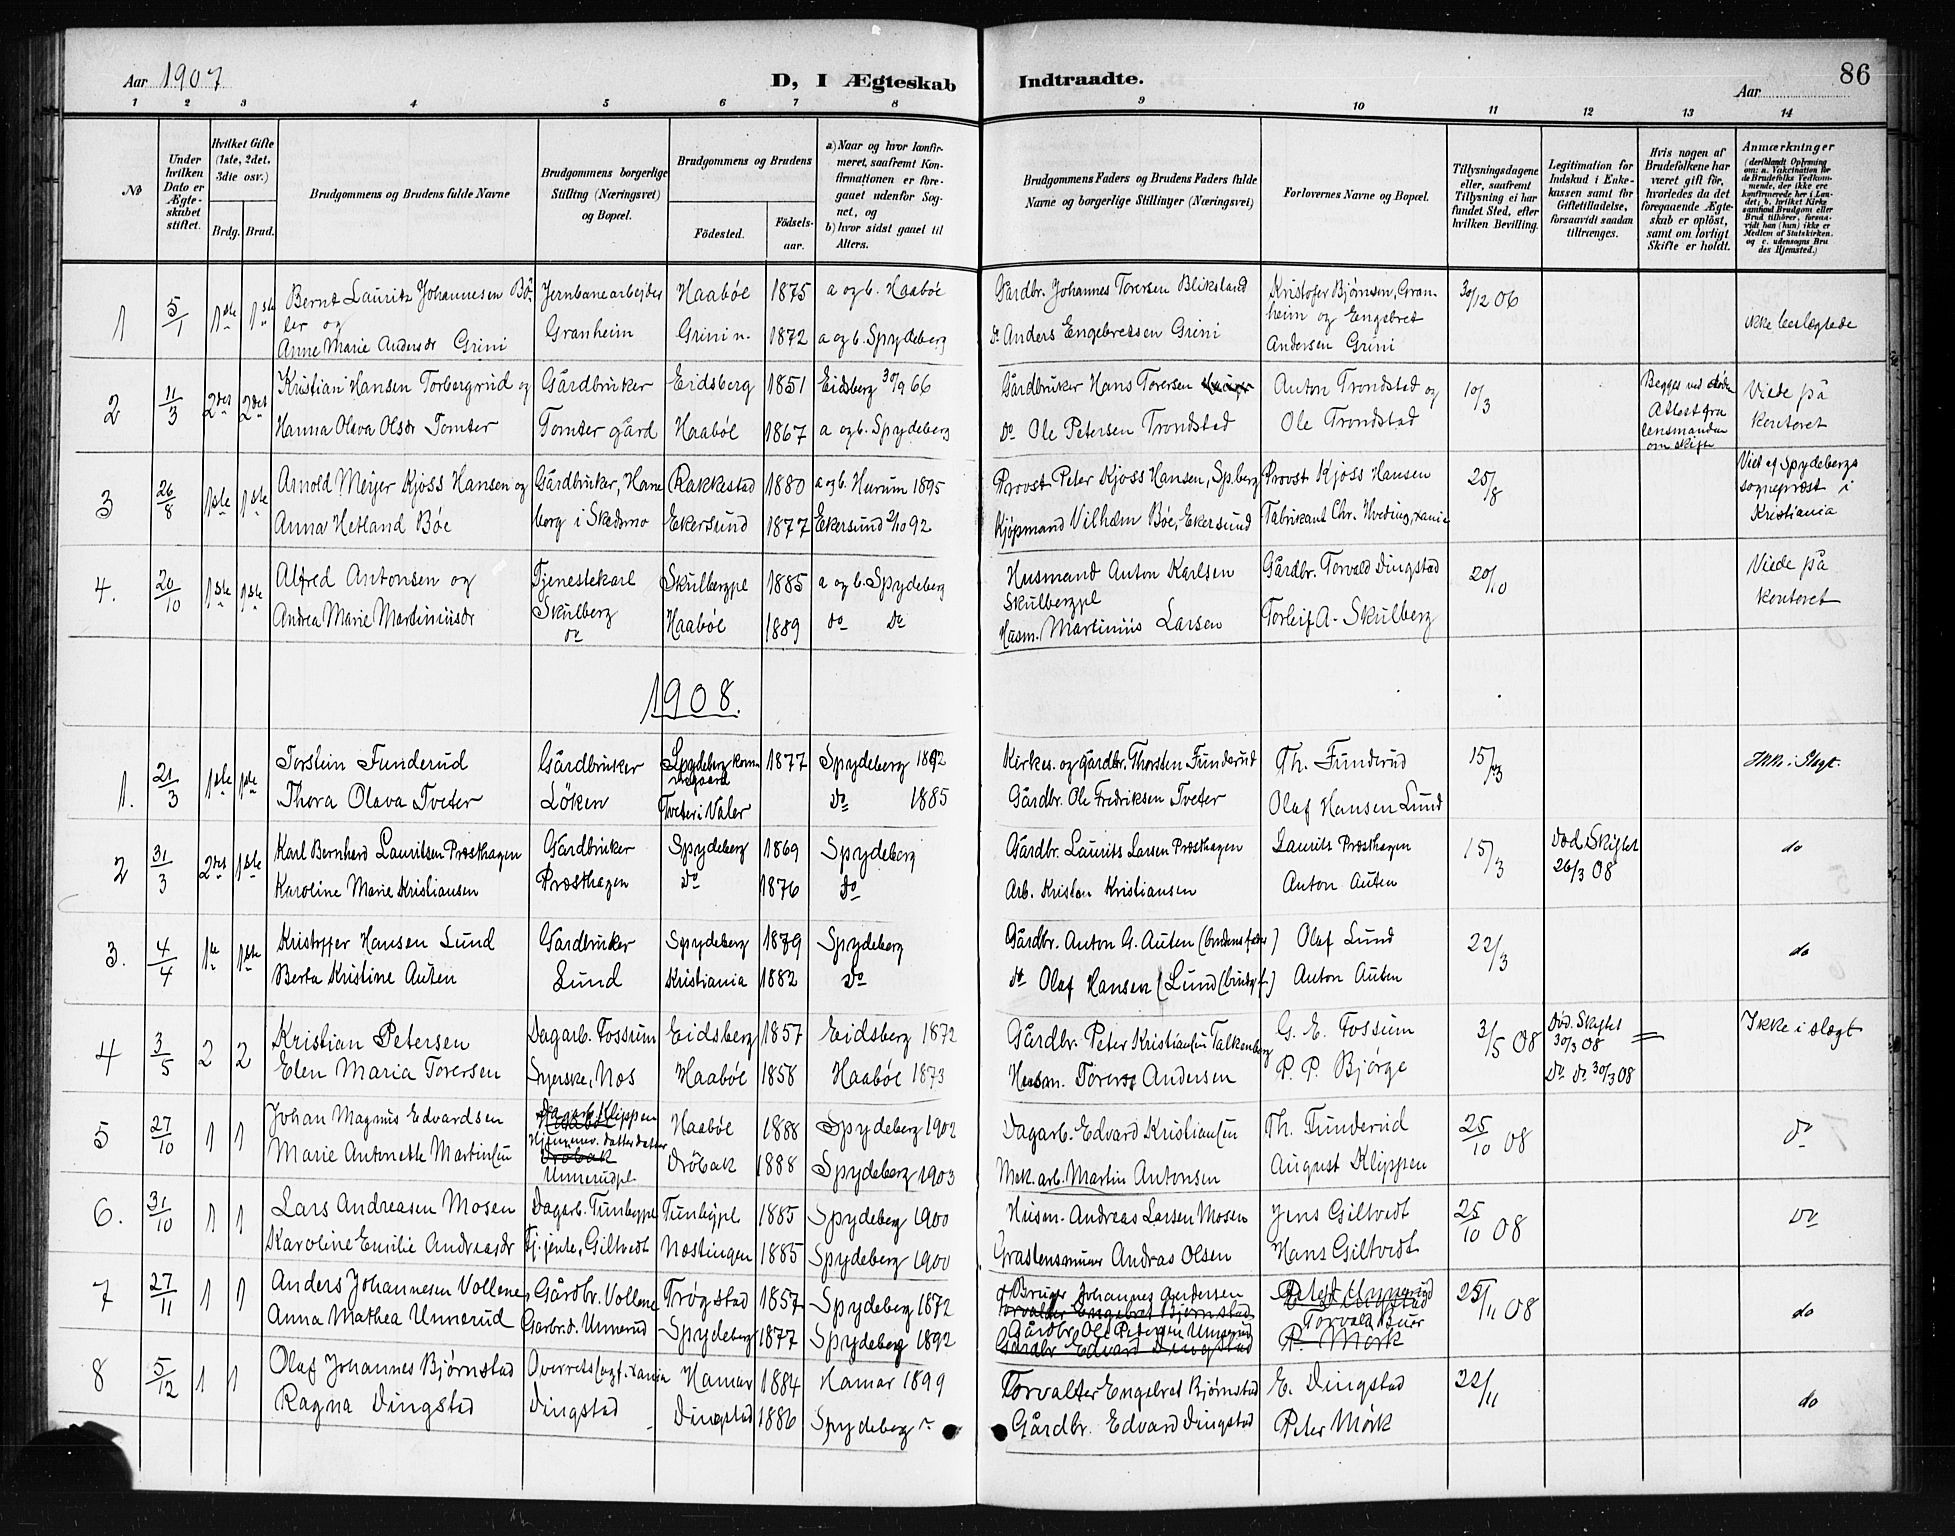 Aar 1907
D, I Ægteskab
Indtraadte.
Aar
86
1 2 3 4 5 6 7 8 9 10 11 12 13 14
No
Under hvilken Dato er Ægteskabet stiftet.
Hvilket Gifte (1ste, 2det, 3die osv.)
Brdg. Brud.
Brudgommens og Brudens fulde Navne
Brudgommens borgerlige Stilling (Næringsvei) og Bopæl.
Brudgommens og Brudens
Födested.
Födsels-aar.
a) Naar og hvor konfirmeret, saafremt Konfirmationen er foregaaet udenfor Sognet, og
b) hvor sidst gaaet til Alters.
Brudgommens Faders og Brudens Faders fulde Navne og borgerlige Stillinger (Næringsvei)
Forlovernes Navne og Bopæl.
Tillysningsdagene eller, saafremt Tillysning ei har fundet Sted, efter hvilken Bevilling.
Legitimation for Indskud i Enkekassen samt for Giftetilladelse, forsaavidt saadan tiltrænges.
Hvis nogen af Brudefolkene har været gift för, hvorledes da det foregaaende Ægteskab er oplöst, samt om lovligt Skifte er holdt.
Anmærkninger
(deriblandt Oplysning om: a. Vakcination för de Brudefolks Vedkommende, der ikke ere konfirmerede her i Landet; b. hvilket Kirkesamfund Brudgom eller Brud tilhörer, forsaavidt han (hun) ikke er Medlem af Statskirken. og c. udensogns Brudes Hjemsted.)
1 5/1 1ste 1ste Bernt Lauritz Johannesen Böler og Jernbanearbejder Haabøl 1875 a og b. Haabøl Gardbr. Johannes Toresen Bliksland Kristofer Bjørnsen, Granheim og Engebret 30/12 06
Anne Marie Andersdr Grini Granheim Grini n. 1872 a og b. Spydeberg do Anders Engebretsen Grini Andersen Grini ikke beslægtede
2 11/3 2det 2det Kristian Hansen Torbergrud og Gårdbruker Eidsberg 1851 Eidsberg 30/9 66 Gårdbruker Hans Toresen Anton Trondstad og 10/3 Begges ved døden Attest fra lensmanden om skifte Viede på
Hanna Oleva Olsdr Tomter Tomter gård Haabøl 1867 a og b. Spydeberg do Ole Petersen Trondstad Ole Trondstad kontoret
3 26/8 1ste 1ste Arnold Meijer Kjoss Hansen og Gårdbruker, Haneborg i Skedsmo Rakkestad 1880 a og b. Hurum 1895 Provst Peter Kjoss Hansen, Sp.berg Provst Kjoss Hansen 25/8 Viet af Spydebergs sogneprest i Kristiania
Anna Hetland Bøe Ekersund 1877 Ekersund 2/10 92 Kjøpmand Vilhelm Bøe, Ekersund Fabrikant Chr. Hveding, xania
4. 20/10 1ste 1ste Alfred Antonsen og Tjenestekarl Skulberg Skulbergpl 1885 a og b. Spydeberg Husmand Anton Karlsen Skulbergpl Gårdbr. Torvald Dingstad 20/10 Viede på
Andrea Marie Martiniusdr do Haabøl 1889 do do Husm. Martinius Larsen Torleif A. Skulberg kontoret
1908.
1. 21/3 1ste 1ste Torstein Funderud Gårdbruker Spydeberg 1877 Spydeberg 1892 Kirkes. og gårdbr. Thorsten Funderud Th. Funderud 15/03 Ikke i Slegt.
Thora Olava Tveter Löken Tveter i Valer do 1885 Gårdbr. Ole Fredriksen Tveter Olaf Hansen Lund
2 31/3 2det 1ste Karl Bernhard Lauritsen Præsthagen Gårdbruker Spydeberg 1869 Spydeberg Gårdbr. Laurits Larsen Præsthagen Laurits Præsthagen 15/3 Död. Skiftet 26/3 08 do
Karoline Marie Kristiansen Præsthagen do 1876 do Arb. Kristen Kristiansen Anton Auten
3. 4/4 1ste 1ste Kristoffer Hansen Lund Gardbruker Spydeberg 1879 Spydeberg Gårdbr. Anton G. Auten (brudens fader) Olaf Lund 22/3 do
Berta Kristine Auten Lund Kristiania 1882 do do Olaf Hansen (Lund (brudg. f.) Anton Auten
4 3/5 2 2 Kristian Petersen Dagarb. Fossum Eidsberg 1857 Eidsberg 1872 Gårdbr. Peter Kristiansen Talkenberg G. E. Fossum 3/5 08 Död. Skiftet 30/3 08 Ikke i slægt
Elen Maria Toversen Syerske, Mos Haabøl 1858 Haabøl 1873 Husm. Tores Andersen P. P. Bjørge do do 30/3 08
5 27/10 1 1 Johan Magnus Edvardsen Dagarb. Klippen Haabøl 1888 Spydeberg 1902 Dagarb. Edvard Kristiansen Th. Funderud 25/10 08 do
Marie Antonette Martinsen Hjemmev. datter Drøbak Unnerudpl Drøbak 1888 Spydeberg 1903 Mek. arb. Martin Antonsen August Klippen
6. 31/10 1 1 Lars Andreasen Mosen Dagarb. Tunbypl Tunbypl 1885 Spydeberg 1900 Husm. Andreas Larsen Mosen Jens Giltvedt 25/10 08 do
Karoline Emilie Andreasdr Tj.jente, Giltvedt Nostingen 1885 Spydeberg 1900 Grastensmurer Andras Olsen Hans Giltvedt
7 27/11 1 1 Anders Johannesen Vollene Gårdbr. Vollene Trøgstad 1857 Spydeberg 1872 Bruger Johannes Andersen Peter Unnerud 25/11 08
Torvalter Engebret Bjørnstad Torvald Buer
Anna Mathea Unnerud Garbr.d. Unnerud Spydeberg 1877 Spydeberg 1892 Gårdbr. Ole Petersen Unnerud P. Mørk do
Gårdbr Edvard Dingstad
8 5/12 1 1 Olaf Johannes Bjørnstad Hamar 1884 Hamar 1899 Torvalter Engebret Bjørnstad E. Dingstad 22/11
Ragna Dingstad Dingstad Dingstad 1886 Spydeberg Gårdbr. Edvard Dingstad Peter Mørk do